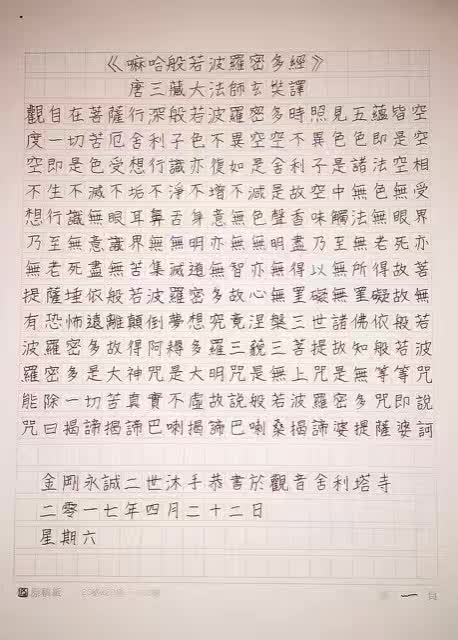 《嘛哈般若波羅密多經》
唐三藏大法師玄奘譯
觀自在菩薩行深般若波羅密多時照見五蘊皆空
度一切苦厄舍利子色不異空空不異色色即是空
空即是色受想行識亦復如是舍利子是諸法空相
不生不滅不垢不淨不增不減是故空中無色無受
想行識無眼耳鼻舌身意無色聲香味觸法無眼界
乃至無意識界無無明亦無無明盡乃至無老死亦
無老死盡無苦集滅道無智亦無得以無所得故菩
提薩埵依般若波羅密多故心無罣礙無罣礙故無
有恐怖遠離顛倒夢想究竟涅槃三世諸佛依般若
波羅密多故得阿耨多羅三藐三菩提故知般若波
羅密多是大神咒是大明咒是無上咒是無等等咒
能除一切苦真實不虛故說般若波羅密多咒即說
咒曰揭諦揭諦巴喇揭諦巴喇桑揭諦婆提薩婆訶
金剛永誠二世沐手恭書於觀音舍利塔寺
二零一七年四月二十二日
星期六
原稿紙
一 頁